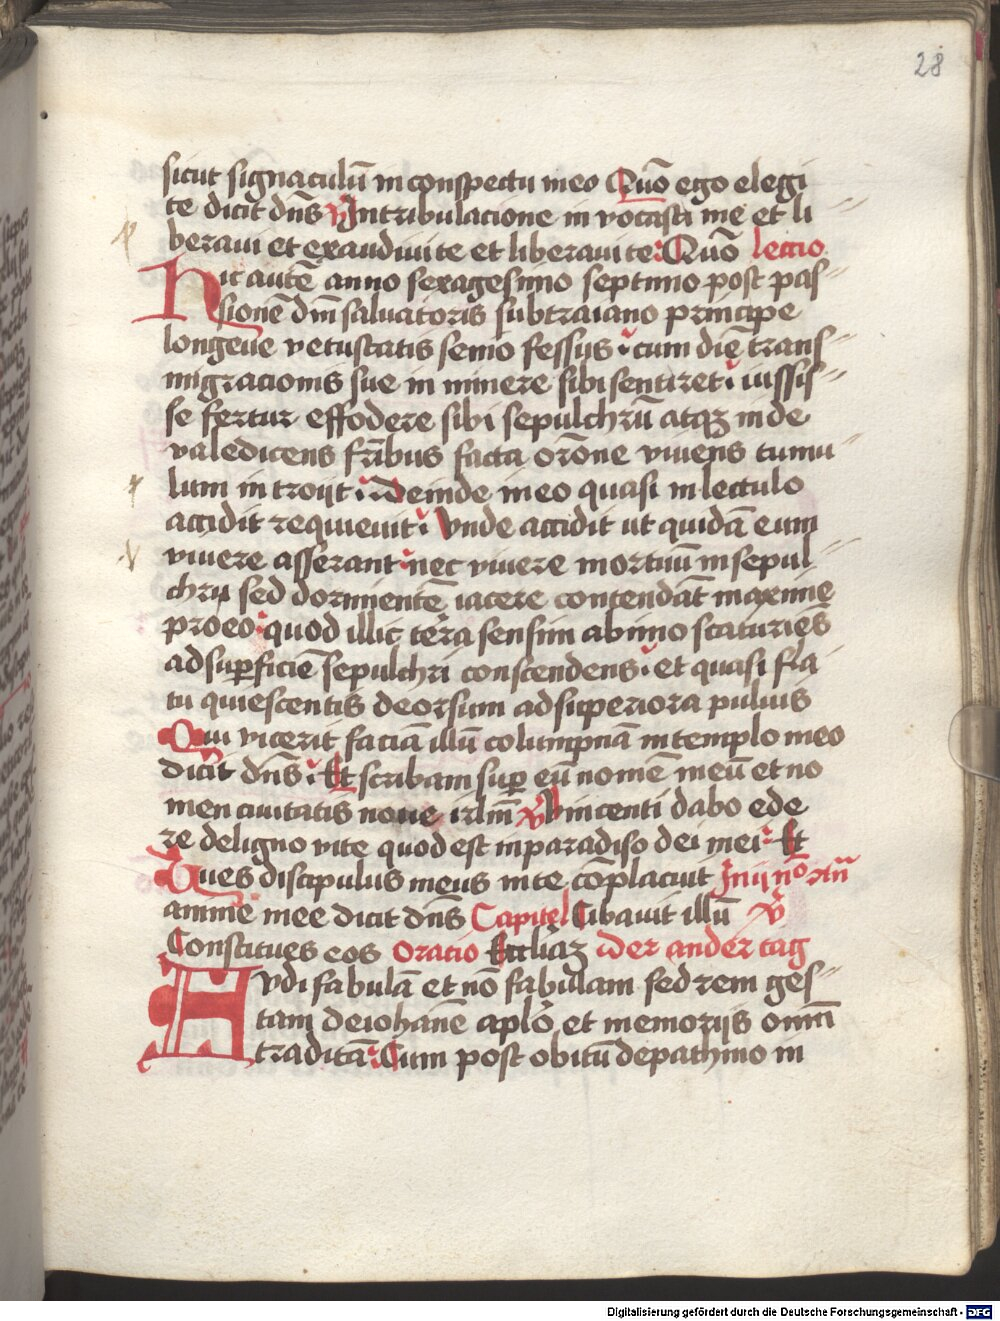 28
sicut signaculū in conspectu meo Quō ego elegi
te dicit dn̄s ℣ In tribulacione in vocasti me et li
beraui et exaudiui te et liberaui te Quō lectio
Hic autē anno sexagesimo septimo post pas
sionē dn̄i saluatoris sub traiano principe
longeue vetustatis senio fessus cum diē trans
migracionis sue in minere sibi sentiret iussis
se fertur effodere sibi sepulchrū atqꝫ inde
valedicens fr̄ibus facta orōne viuens tumu
lum introijt Deinde in eo quasi in lectulo
accidit requieuit Vnde accidit ut quidā eum
viuere asserant nec viuere mortuū in sepul
chru sed dormientē iacere contendāt maxime
pro eo quod illic terra sensim ab imo scaturiēs
ad suꝑficiē sepulchri conscendens et quasi fla
tu quiescentis deorsum ad superiora puluis
Qui vicerit faciā illū columpnā in templo meo
dicit dn̄s Et scribam suꝑ eū nomē meū et no
men ciuitatis noue irlm̄ ℣ Vincenti dabo ede
re de ligno vite quod est in paradiso dei mei Et
ues discipulus meus in te cōplacuit In ij nō
anime mee dicit dn̄s Capitel Cibauit illū ℣
Constitues eos Oratio Eccliāꝫ Der ander tag
Audi fabulā et nō fabulam sed rem ges
tam de iohanē aplō et memorijs om̄i
traditā Cum post obitū de pathmo in
Digitalisierung gefördert durch die Deutsche Forschungsgemeinschaft - DFG